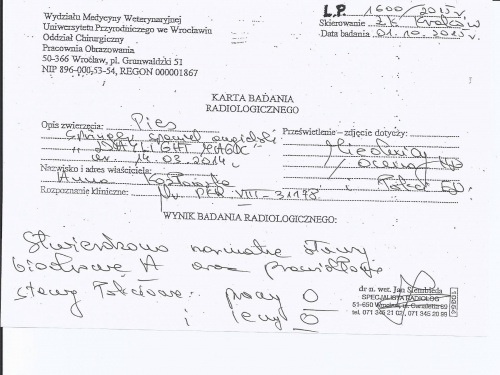 Wydziału Medycyny Weterynaryjnej
Uniwersytetu Przyrodniczego we Wrocławiu
Oddział Chirurgiczny
Pracownia Obrazowania
50-366 Wrocław, pl. Grunwaldzki 51
NIP 896-000-53-54, REGON 000001867
L.P. 1600/2015 r.
Skierowanie ZK Kraków
Data badania 01.10.2015 r.
KARTA BADANIA
RADIOLOGICZNEGO
Opis zwierzęcia: Pies
springer spaniel angielski
"DAYLIGHT MAGIC"
ur. 14.03.2014 r.
Prześwietlenie – zdjęcie dotyczy:
Miednicy
ocena HD
i łokci ED
Nazwisko i adres właściciela:
Anna
Rozpoznanie kliniczne: Nr PKR VIII-31178
WYNIK BADANIA RADIOLOGICZNEGO:
Stwierdzono normalne stawy
biodrowe A oraz prawidłowe
stawy łokciowe: prawy 0
i lewy 0
dr n. wet. Jan Siembieda
SPECJALISTA RADIOLOG
51-650 Wrocław, 69
tel. 071 345 21 02, 071 345 20 99